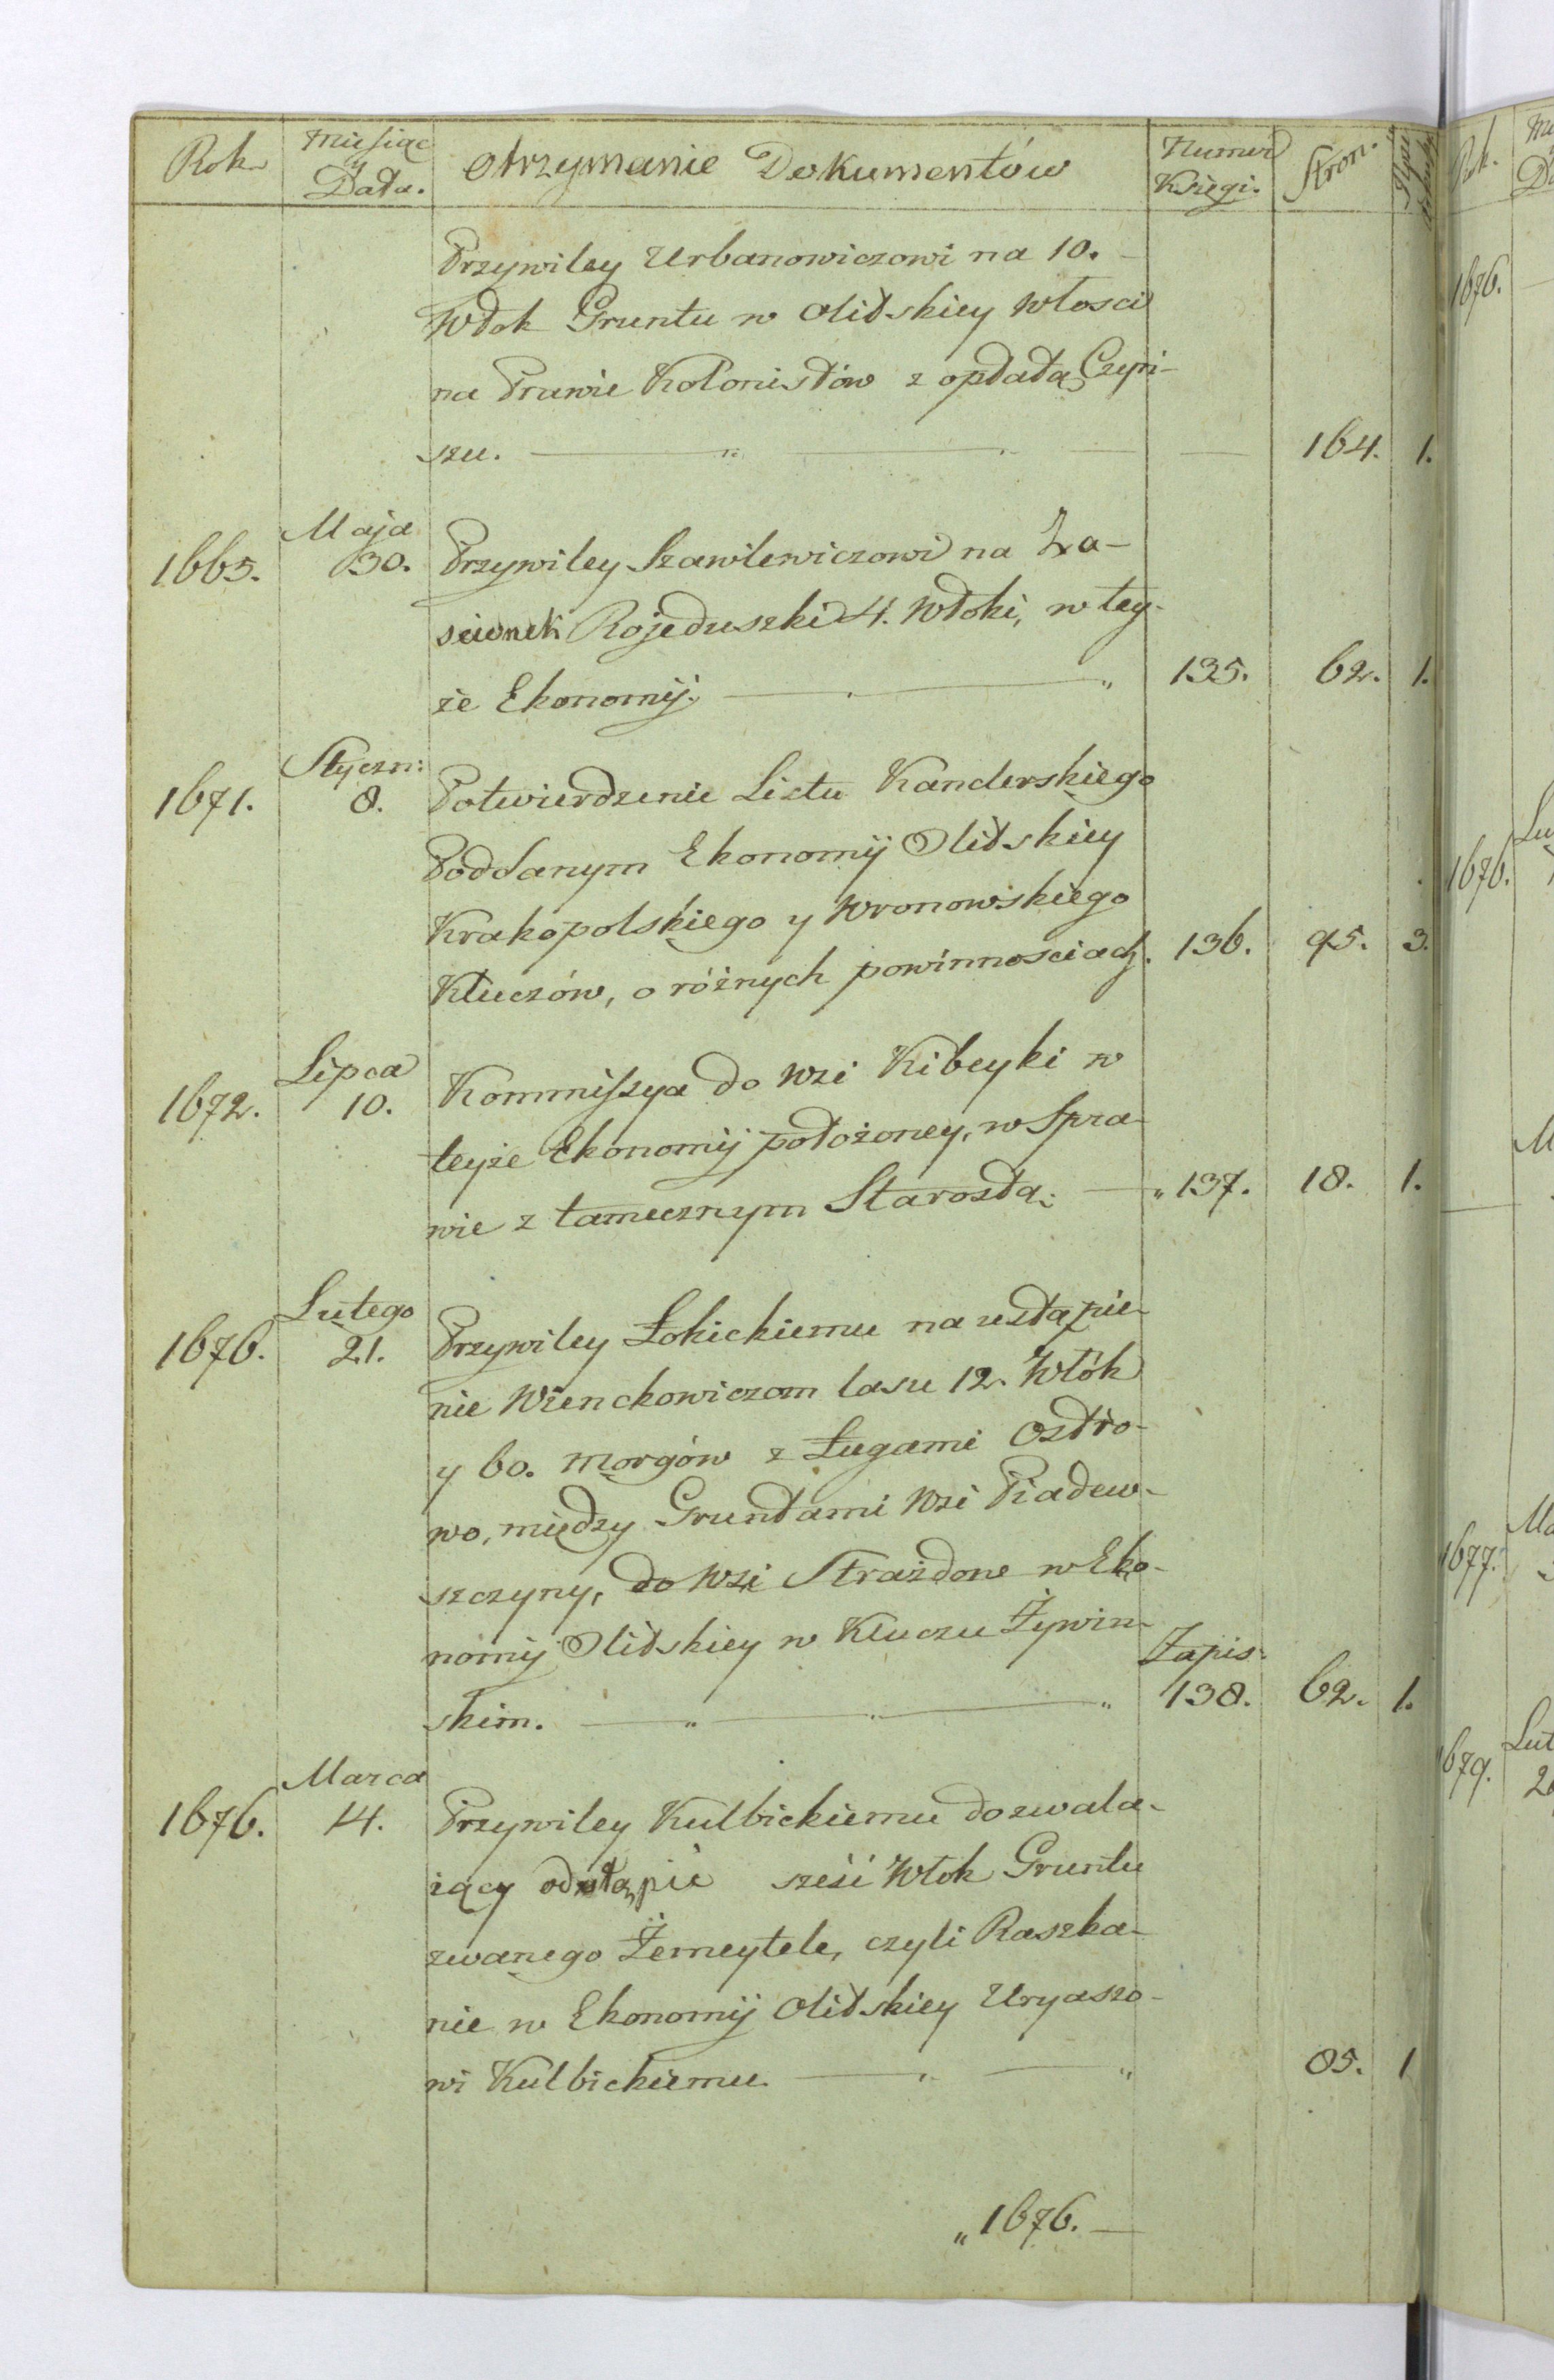 Rok Miesiąc y Data. Otrzymanie Dokumentów Numer Księgi. Stron.
Przywiley Urbanowiczowi na 10.
Włok Gruntu w Olitskiey Włosci
na Prawie Kolonistów z opłatą Czyn-
szu. 164. 1.
1665. Maja 30. Przywiley Szawlewiczowi na Za-
scionek Rojeduszki 4. Włoki, w tey-
że Ekonomij. 135. 62. 1.
1671. Styczn: 8. Potwierdzenie Listu Kanderskiego
Poddanym Ekonomij Olitskiey
Krakopolskiego y Wronowskiego
Kluczów, o różnych powinnosciach. 136. 95. 3.
1672. Lipca 10. Kommissya do Wsi Kibeyki w
teyże Ekonomij położoney, w Spra-
wie z tamecznym Starostą. 137. 18. 1.
1676. Lutego 21. Przywiley Łokickiemu na ustąpie-
nie Wienckowiczom lasu 12. Włók
y 60. morgów z Ługami Ostro-
wo, między Gruntami Wsi Piadew-
szczyny, do Wsi Strażdone w Eko-
nomij Olitskiey w Kluczu Żywin-
skim. Zapis: 138. 62. 1.
1676. Marca 14. Przywiley Kulbickiemu dozwala-
iący odstąpić sześć Włok Gruntu
zwanego Żemeytele, czyli Raszka-
nie w Ekonomij Olitskiey Uryaszo-
wi Kulbickiemu. 85. 1
„1676.